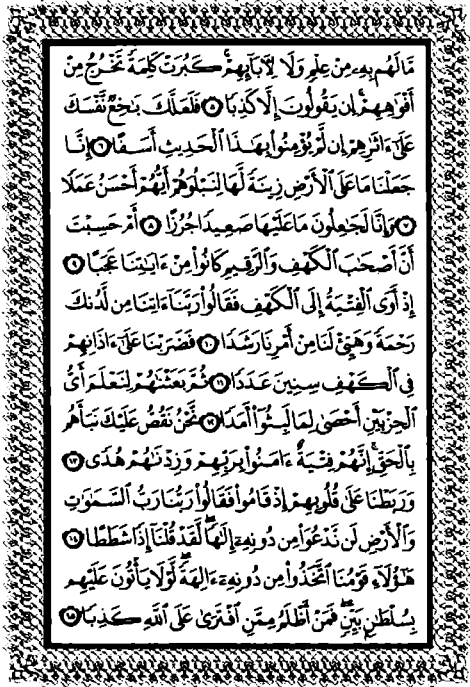 مَّا لَهُم بِهِۦ مِنْ عِلْمٍ وَلَا لِأٓبَآئِهِمْ ۚ كَبُرَتْ كَلِمَةً تَخْرُجُ مِنْ
أَفْوَٰهِهِمْ ۚ إِن يَقُولُونَ إِلَّا كَذِبًا ٥ فَلَعَلَّكَ بَٰخِعٌ نَّفْسَكَ
عَلَىٰٓ ءَاثَٰرِهِمْ إِن لَّمْ يُؤْمِنُوا۟ بِهَٰذَا ٱلْحَدِيثِ أَسَفًا ٦ إِنَّا
جَعَلْنَا مَا عَلَى ٱلْأَرْضِ زِينَةً لَّهَا لِنَبْلُوَهُمْ أَيُّهُمْ أَحْسَنُ عَمَلًا
٧ وَإِنَّا لَجَٰعِلُونَ مَا عَلَيْهَا صَعِيدًا جُرُزًا ٨ أَمْ حَسِبْتَ
أَنَّ أَصْحَٰبَ ٱلْكَهْفِ وَٱلرَّقِيمِ كَانُوا۟ مِنْ ءَايَٰتِنَا عَجَبًا ٩
إِذْ أَوَى ٱلْفِتْيَةُ إِلَى ٱلْكَهْفِ فَقَالُوا۟ رَبَّنَآ ءَاتِنَا مِن لَّدُنكَ
رَحْمَةً وَهَيِّئْ لَنَا مِنْ أَمْرِنَا رَشَدًا ١٠ فَضَرَبْنَا عَلَىٰٓ ءَاذَانِهِمْ
فِى ٱلْكَهْفِ سِنِينَ عَدَدًا ١١ ثُمَّ بَعَثْنَٰهُمْ لِنَعْلَمَ أَىُّ
ٱلْحِزْبَيْنِ أَحْصَىٰ لِمَا لَبِثُوٓا۟ أَمَدًا ١٢ نَّحْنُ نَقُصُّ عَلَيْكَ نَبَأَهُم
بِٱلْحَقِّ ۚ إِنَّهُمْ فِتْيَةٌ ءَامَنُوا۟ بِرَبِّهِمْ وَزِدْنَٰهُمْ هُدًى ١٣
وَرَبَطْنَا عَلَىٰ قُلُوبِهِمْ إِذْ قَامُوا۟ فَقَالُوا۟ رَبُّنَا رَبُّ ٱلسَّمَٰوَٰتِ
وَٱلْأَرْضِ لَن نَّدْعُوَا۟ مِن دُونِهِۦٓ إِلَٰهًا ۖ لَّقَدْ قُلْنَآ إِذًا شَطَطًا ١٤
هَٰٓؤُلَآءِ قَوْمُنَا ٱتَّخَذُوا۟ مِن دُونِهِۦٓ ءَالِهَةً ۖ لَّوْلَا يَأْتُونَ عَلَيْهِم
بِسُلْطَٰنٍۭ بَيِّنٍ ۖ فَمَنْ أَظْلَمُ مِمَّنِ ٱفْتَرَىٰ عَلَى ٱللَّهِ كَذِبًا ١٥